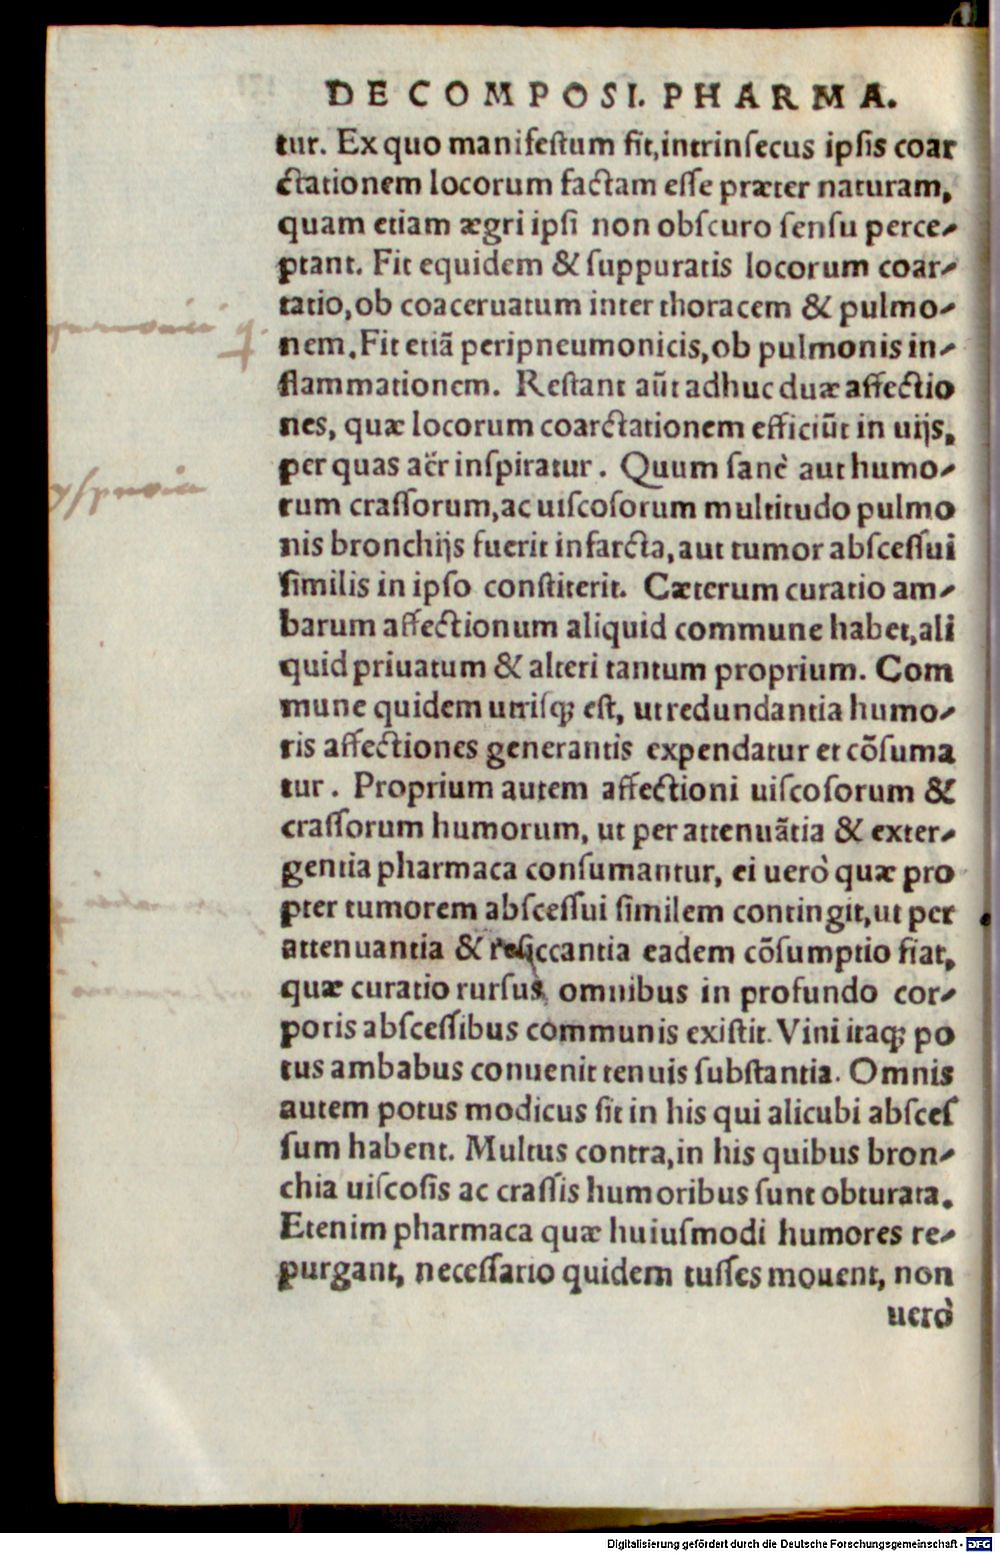 DE COMPOSI. PHARMA.
tur. Ex quo manifestum fit, intrinsecus ipsis coar
ctationem locorum factam esse præter naturam,
quam etiam ægri ipsi non obscuro sensu perce-
ptant. Fit equidem & suppuratis locorum coar-
tatio, ob coaceruatum inter thoracem & pulmo-
nem. Fit etiã peripneumonicis, ob pulmonis in-
flammationem. Restant aũt adhuc duæ affectio
nes, quæ locorum coarctationem efficiũt in uijs,
per quas aër inspiratur. Quum sanè aut humo-
rum crassorum, ac uiscosorum multitudo pulmo
nis bronchijs fuerit infarcta, aut tumor abscessui
similis in ipso constiterit. Cæterum curatio am-
barum affectionum aliquid commune habet, ali
quid priuatum & alteri tantum proprium. Com
mune quidem utrisq; est, ut redundantia humo-
ris affectiones generantis expendatur et cõsuma
tur. Proprium autem affectioni uiscosorum &
crassorum humorum, ut per attenuãtia & exter-
gentia pharmaca consumantur, ei uerò quæ pro
pter tumorem abscessui similem contingit, ut per
attenuantia & resiccantia eadem cõsumptio fiat,
quæ curatio rursus omnibus in profundo cor-
poris abscessibus communis existit. Vini itaq; po
tus ambabus conuenit tenuis substantia. Omnis
autem potus modicus sit in his qui alicubi absces
sum habent. Multus contra, in his quibus bron-
chia uiscosis ac crassis humoribus sunt obturata.
Etenim pharmaca quæ huiusmodi humores re-
purgant, necessario quidem tusses mouent, non
uerò
Digitalisierung gefördert durch die Deutsche Forschungsgemeinschaft - DFG